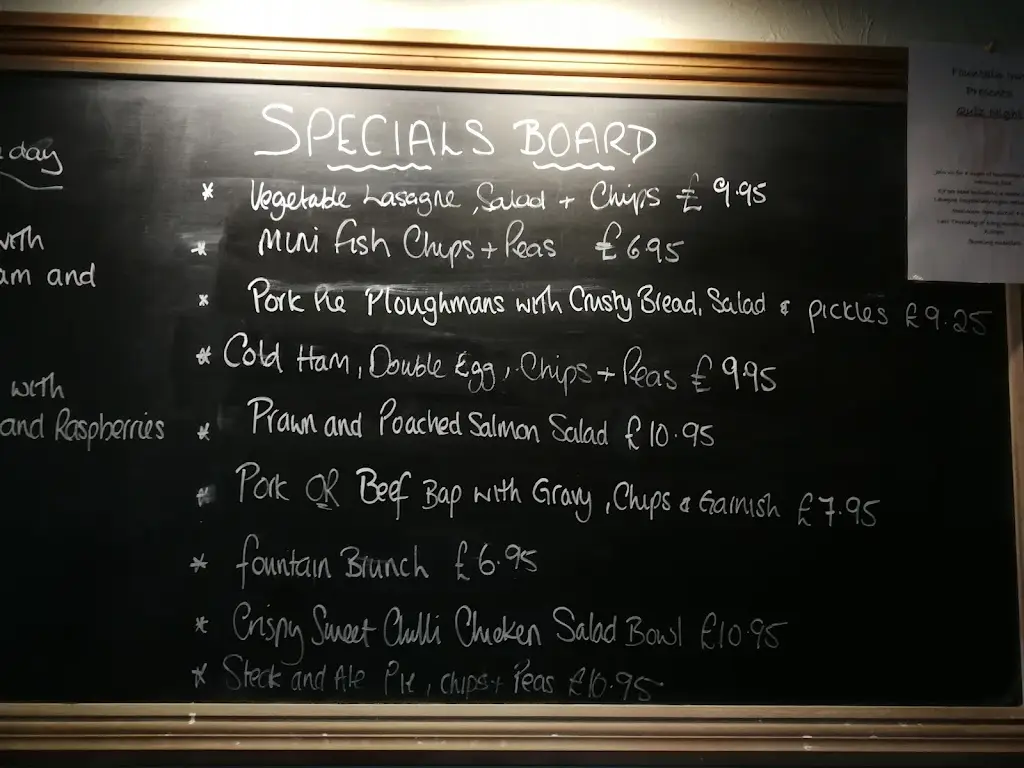 day
with
am and
with
and Raspberries
SPECIALS BOARD
* Vegetable Lasagne, Salad + Chips £9.95
* Mini Fish Chips + Peas £6.95
* Pork Pie Ploughmans with Crusty Bread, Salad & pickles £9.25
* Cold Ham, Double Egg, Chips + Peas £9.95
* Prawn and Poached Salmon Salad £10.95
* Pork OR Beef Bap with Gravy, Chips & Garnish £7.95
* Fountain Brunch £6.95
* Crispy Sweet Chilli Chicken Salad Bowl £10.95
* Steak and Ale Pie, chips + Peas £10.95
Fountain
Presents
Quiz Night